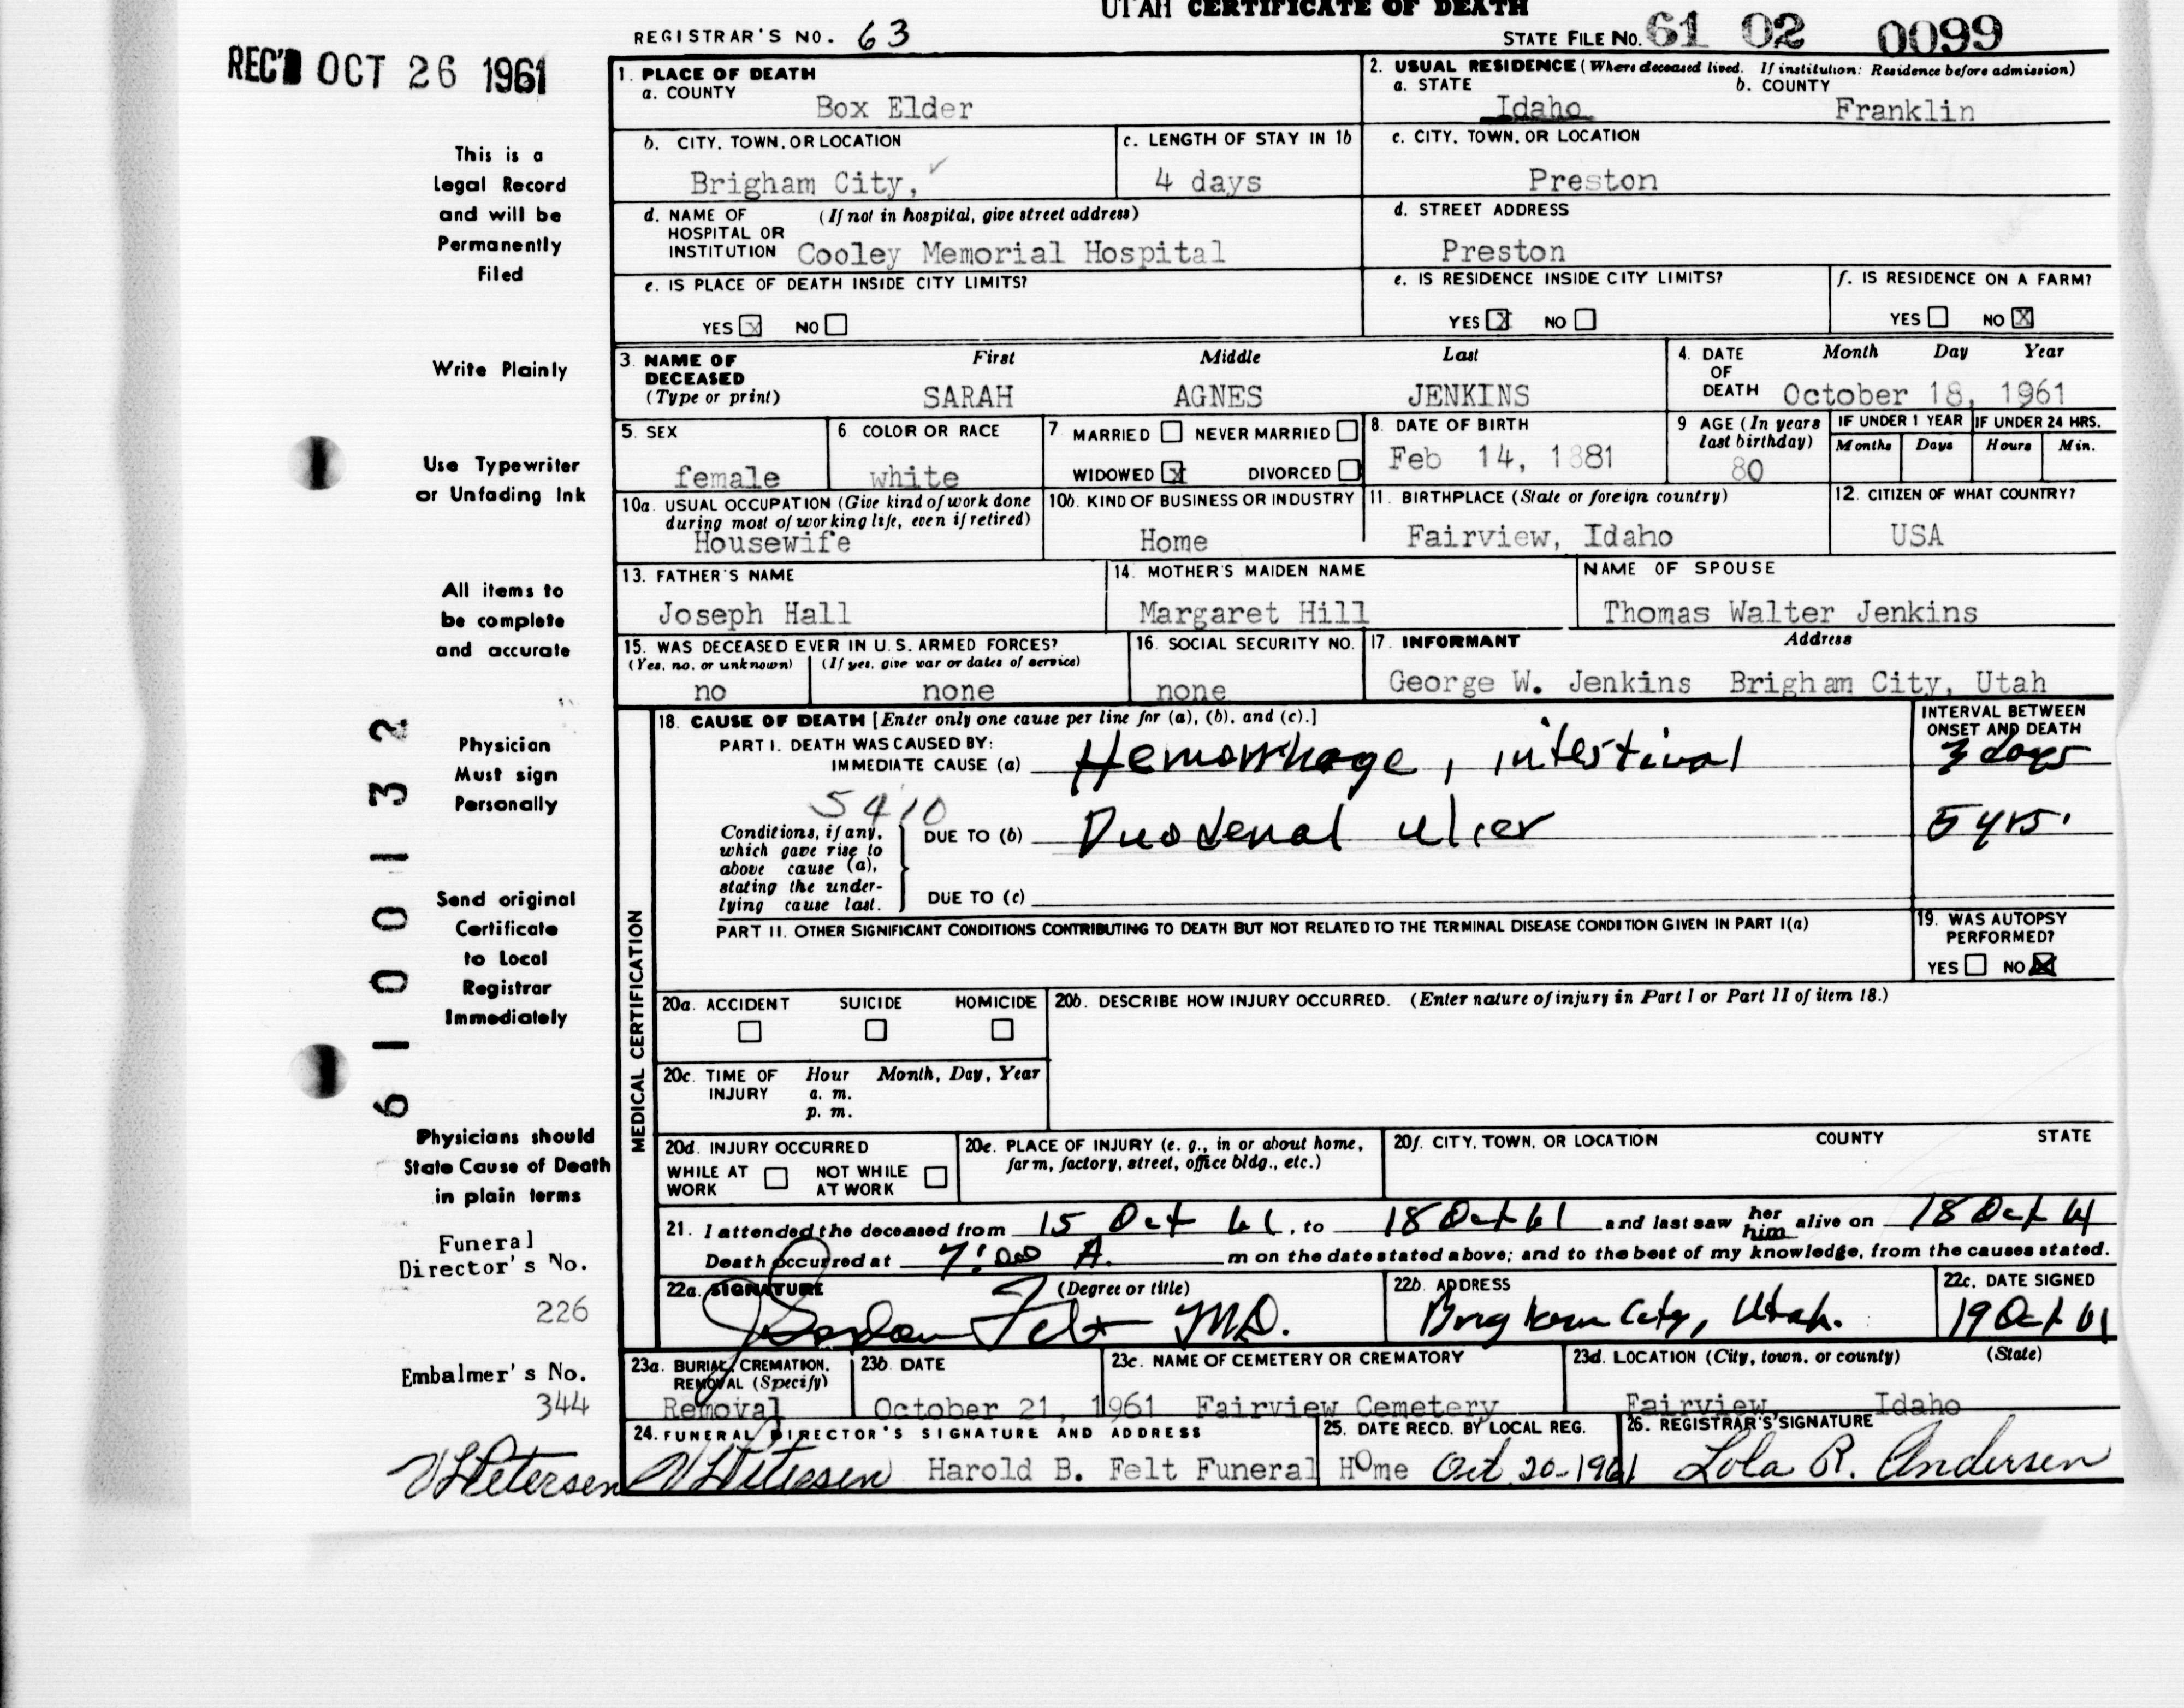 UTAH CERTIFICATE OF DEATH
REGISTRAR'S NO. 63
STATE FILE NO. 61 02 0099
REC'D OCT 26 1961
1. PLACE OF DEATH
a. COUNTY
Box Elder
2. USUAL RESIDENCE (Where deceased lived. If institution: Residence before admission)
a. STATE b. COUNTY
Idaho Franklin
b. CITY, TOWN, OR LOCATION
Brigham City,
c. LENGTH OF STAY IN 1b
4 days
c. CITY, TOWN, OR LOCATION
Preston
d. NAME OF HOSPITAL OR INSTITUTION (If not in hospital, give street address)
Cooley Memorial Hospital
d. STREET ADDRESS
Preston
e. IS PLACE OF DEATH INSIDE CITY LIMITS?
YES X NO
e. IS RESIDENCE INSIDE CITY LIMITS?
YES X NO
f. IS RESIDENCE ON A FARM?
YES NO X
3. NAME OF DECEASED (Type or print)
First Middle Last
SARAH AGNES JENKINS
4. DATE OF DEATH
Month Day Year
October 18, 1961
5. SEX
female
6 COLOR OR RACE
white
7 MARRIED NEVER MARRIED
WIDOWED X DIVORCED
8. DATE OF BIRTH
Feb 14, 1881
9 AGE (In years last birthday)
80
IF UNDER 1 YEAR IF UNDER 24 HRS.
Months Days Hours Min.
10a. USUAL OCCUPATION (Give kind of work done during most of working life, even if retired)
Housewife
10b. KIND OF BUSINESS OR INDUSTRY
Home
11. BIRTHPLACE (State or foreign country)
Fairview, Idaho
12. CITIZEN OF WHAT COUNTRY?
USA
13. FATHER'S NAME
Joseph Hall
14. MOTHER'S MAIDEN NAME
Margaret Hill
NAME OF SPOUSE
Thomas Walter Jenkins
15. WAS DECEASED EVER IN U.S. ARMED FORCES?
(Yes, no, or unknown) (If yes, give war or dates of service)
no none
16. SOCIAL SECURITY NO.
none
17. INFORMANT Address
George W. Jenkins Brigham City, Utah
MEDICAL CERTIFICATION
18. CAUSE OF DEATH [Enter only one cause per line for (a), (b), and (c).]
INTERVAL BETWEEN ONSET AND DEATH
PART I. DEATH WAS CAUSED BY:
IMMEDIATE CAUSE (a) Hemorrhage, intestinal 3 days
5410
Conditions, if any, which gave rise to above cause (a), stating the underlying cause last.
DUE TO (b) Duodenal ulcer 5 yrs.
DUE TO (c)
PART II. OTHER SIGNIFICANT CONDITIONS CONTRIBUTING TO DEATH BUT NOT RELATED TO THE TERMINAL DISEASE CONDITION GIVEN IN PART I(a)
19. WAS AUTOPSY PERFORMED?
YES NO X
20a. ACCIDENT SUICIDE HOMICIDE
20b. DESCRIBE HOW INJURY OCCURRED. (Enter nature of injury in Part I or Part II of item 18.)
20c. TIME OF INJURY Hour Month, Day, Year
a. m.
p. m.
20d. INJURY OCCURRED
WHILE AT WORK NOT WHILE AT WORK
20e. PLACE OF INJURY (e. g., in or about home, farm, factory, street, office bldg., etc.)
20f. CITY, TOWN, OR LOCATION COUNTY STATE
21. I attended the deceased from 15 Oct 61, to 18 Oct 61 and last saw her him alive on 18 Oct 61
Death occurred at 7:00 A. m on the date stated above; and to the best of my knowledge, from the causes stated.
22a. SIGNATURE (Degree or title)
Felt M.D.
22b. ADDRESS
Brigham City, Utah.
22c. DATE SIGNED
19 Oct 61
23a. BURIAL, CREMATION, REMOVAL (Specify)
Removal
23b. DATE
October 21, 1961
23c. NAME OF CEMETERY OR CREMATORY
Fairview Cemetery
23d. LOCATION (City, town, or county) (State)
Fairview, Idaho
24. FUNERAL DIRECTOR'S SIGNATURE AND ADDRESS
Petersen Harold B. Felt Funeral Home
25. DATE RECD. BY LOCAL REG.
Oct 20-1961
26. REGISTRAR'S SIGNATURE
Lola R. Andersen
This is a
Legal Record
and will be
Permanently
Filed
Write Plainly
Use Typewriter
or Unfading Ink
All items to
be complete
and accurate
Physician
Must sign
Personally
Send original
Certificate
to Local
Registrar
Immediately
Physicians should
State Cause of Death
in plain terms
Funeral
Director's No.
226
Embalmer's No.
344
Petersen
61 00132